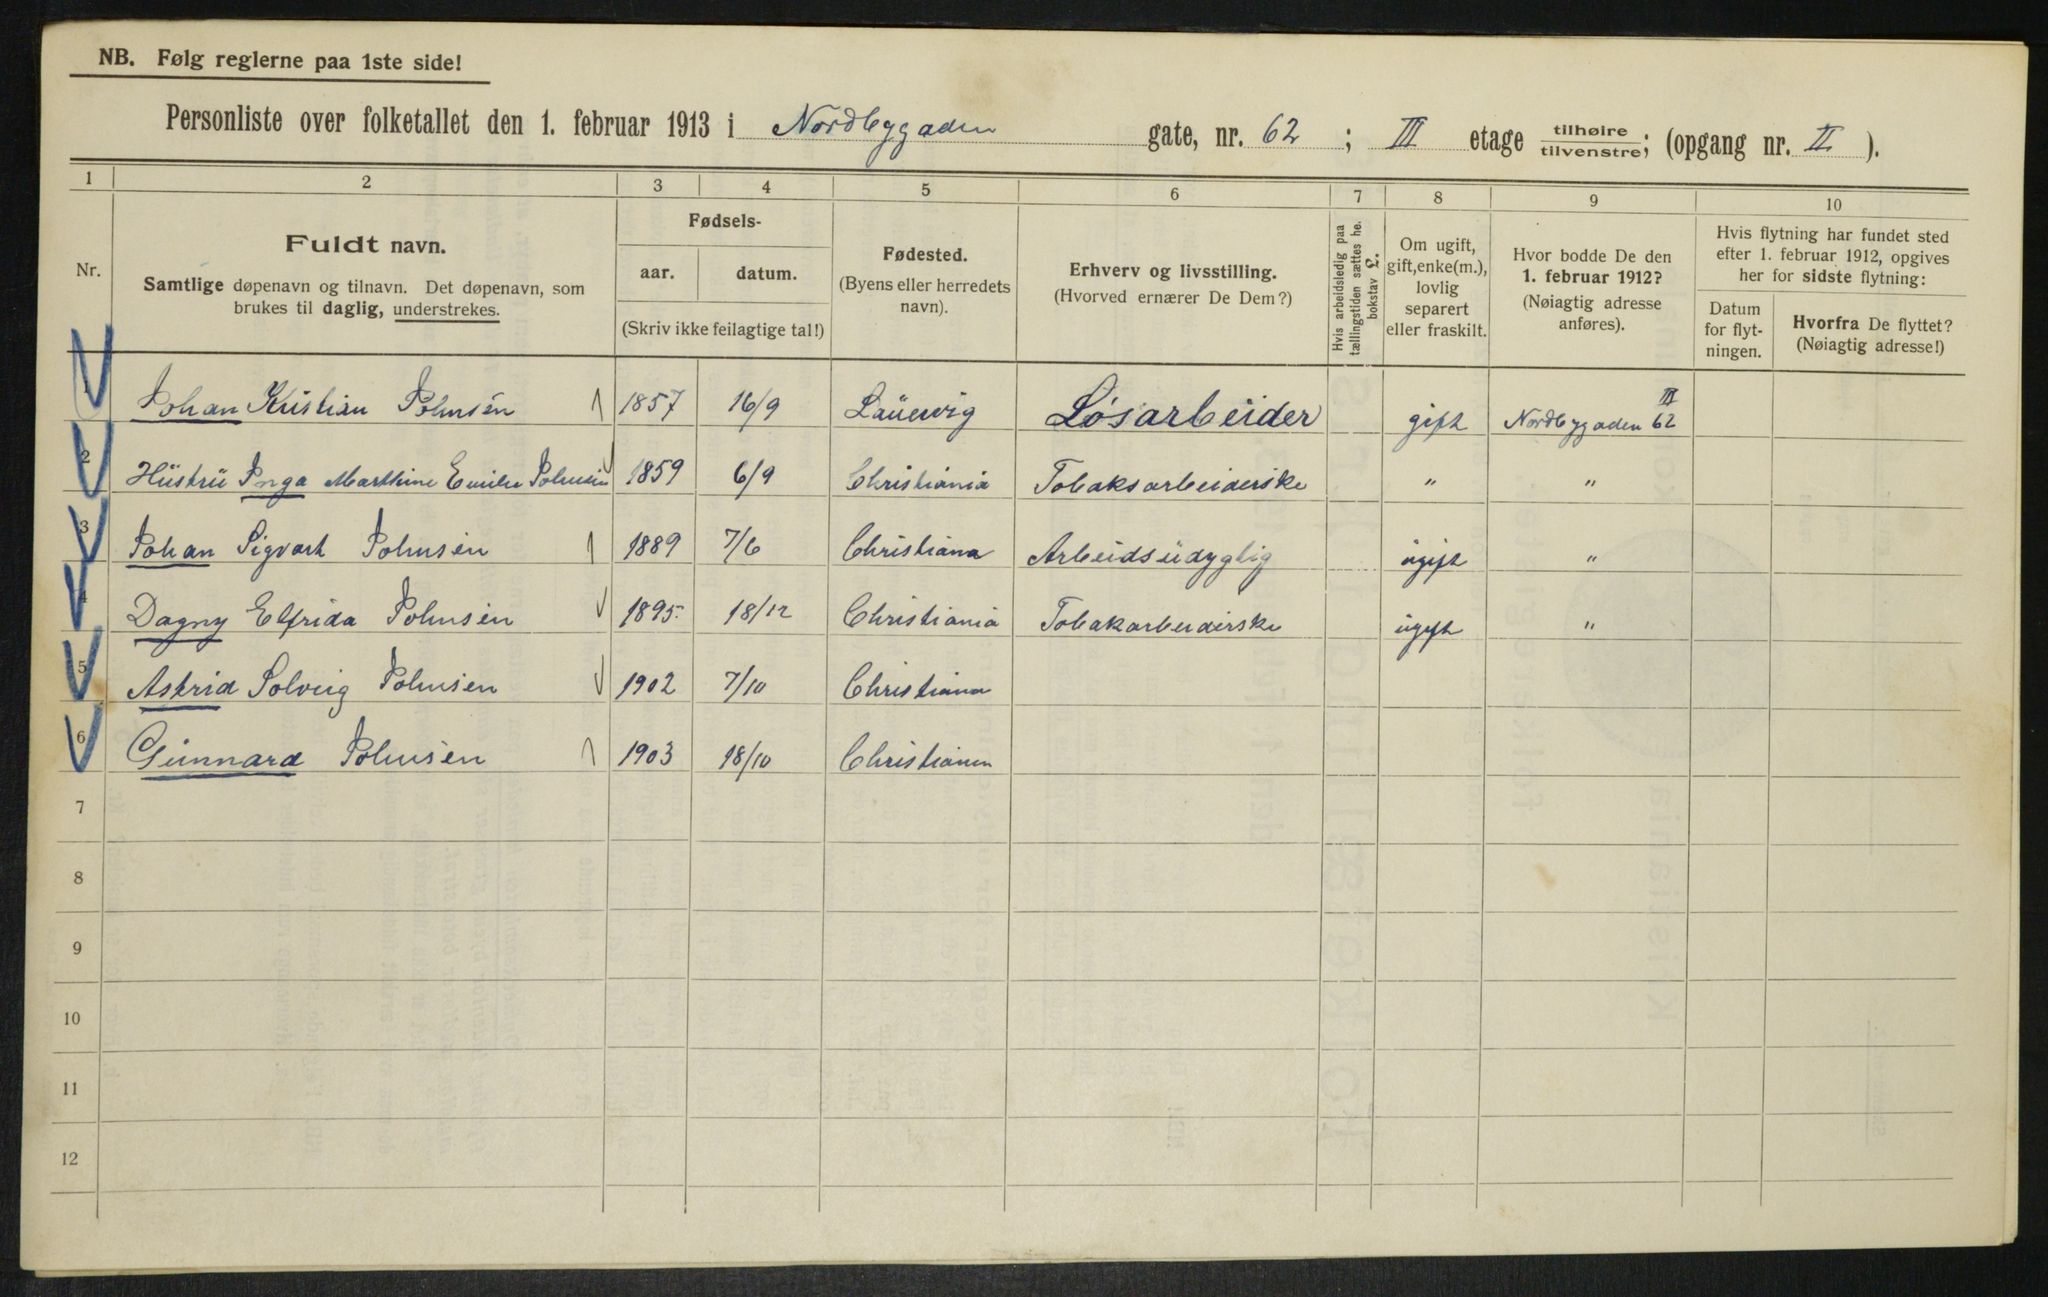 NB. Følg reglerne paa 1ste side!
Personliste over folketallet den 1. februar 1913 i Nordbygaden gate, nr. 62 ; III etage tilhøire/tilvenstre; (opgang nr. II ).
1 2 3 4 5 6 7 8 9 10
Nr.
Fuldt navn.
Samtlige døpenavn og tilnavn. Det døpenavn, som
brukes til daglig, understrekes.
Fødsels-
aar. datum.
(Skriv ikke feilagtige tal!)
Fødested.
(Byens eller herredets
navn).
Erhverv og livsstilling.
(Hvorved ernærer De Dem?)
Hvis arbeidsledig paa
tællingstiden sættes he.
bokstav L.
Om ugift,
gift, enke(m.),
lovlig
separert
eller fraskilt.
Hvor bodde De den
1. februar 1912?
(Nøiagtig adresse
anføres).
Hvis flytning har fundet sted
efter 1. februar 1912, opgives
her for sidste flytning:
Datum
for flyt-
ningen.
Hvorfra De flyttet?
(Nøiagtig adresse!)
1 Johan Kristian Johnsen 1857 16/9 Laurvig Løsarbeider gift Nordbygaden 62 III
2 Hustru Inga Marthine Emilie Johnsen 1859 6/9 Christiania Tobaksarbeiderske " "
3 Johan Sigvart Johnsen 1889 7/6 Christiana Arbeidsudygtig ugift "
4 Dagny Elfrida Johnsen 1895. 18/12 Christiania Tobakarbeiderske ugift "
5 Astrid Solveig Johnsen 1902 7/10 Christiana
6 Gunnard Johnsen 1903 18/10 Christiania
7
8
9
10
11
12